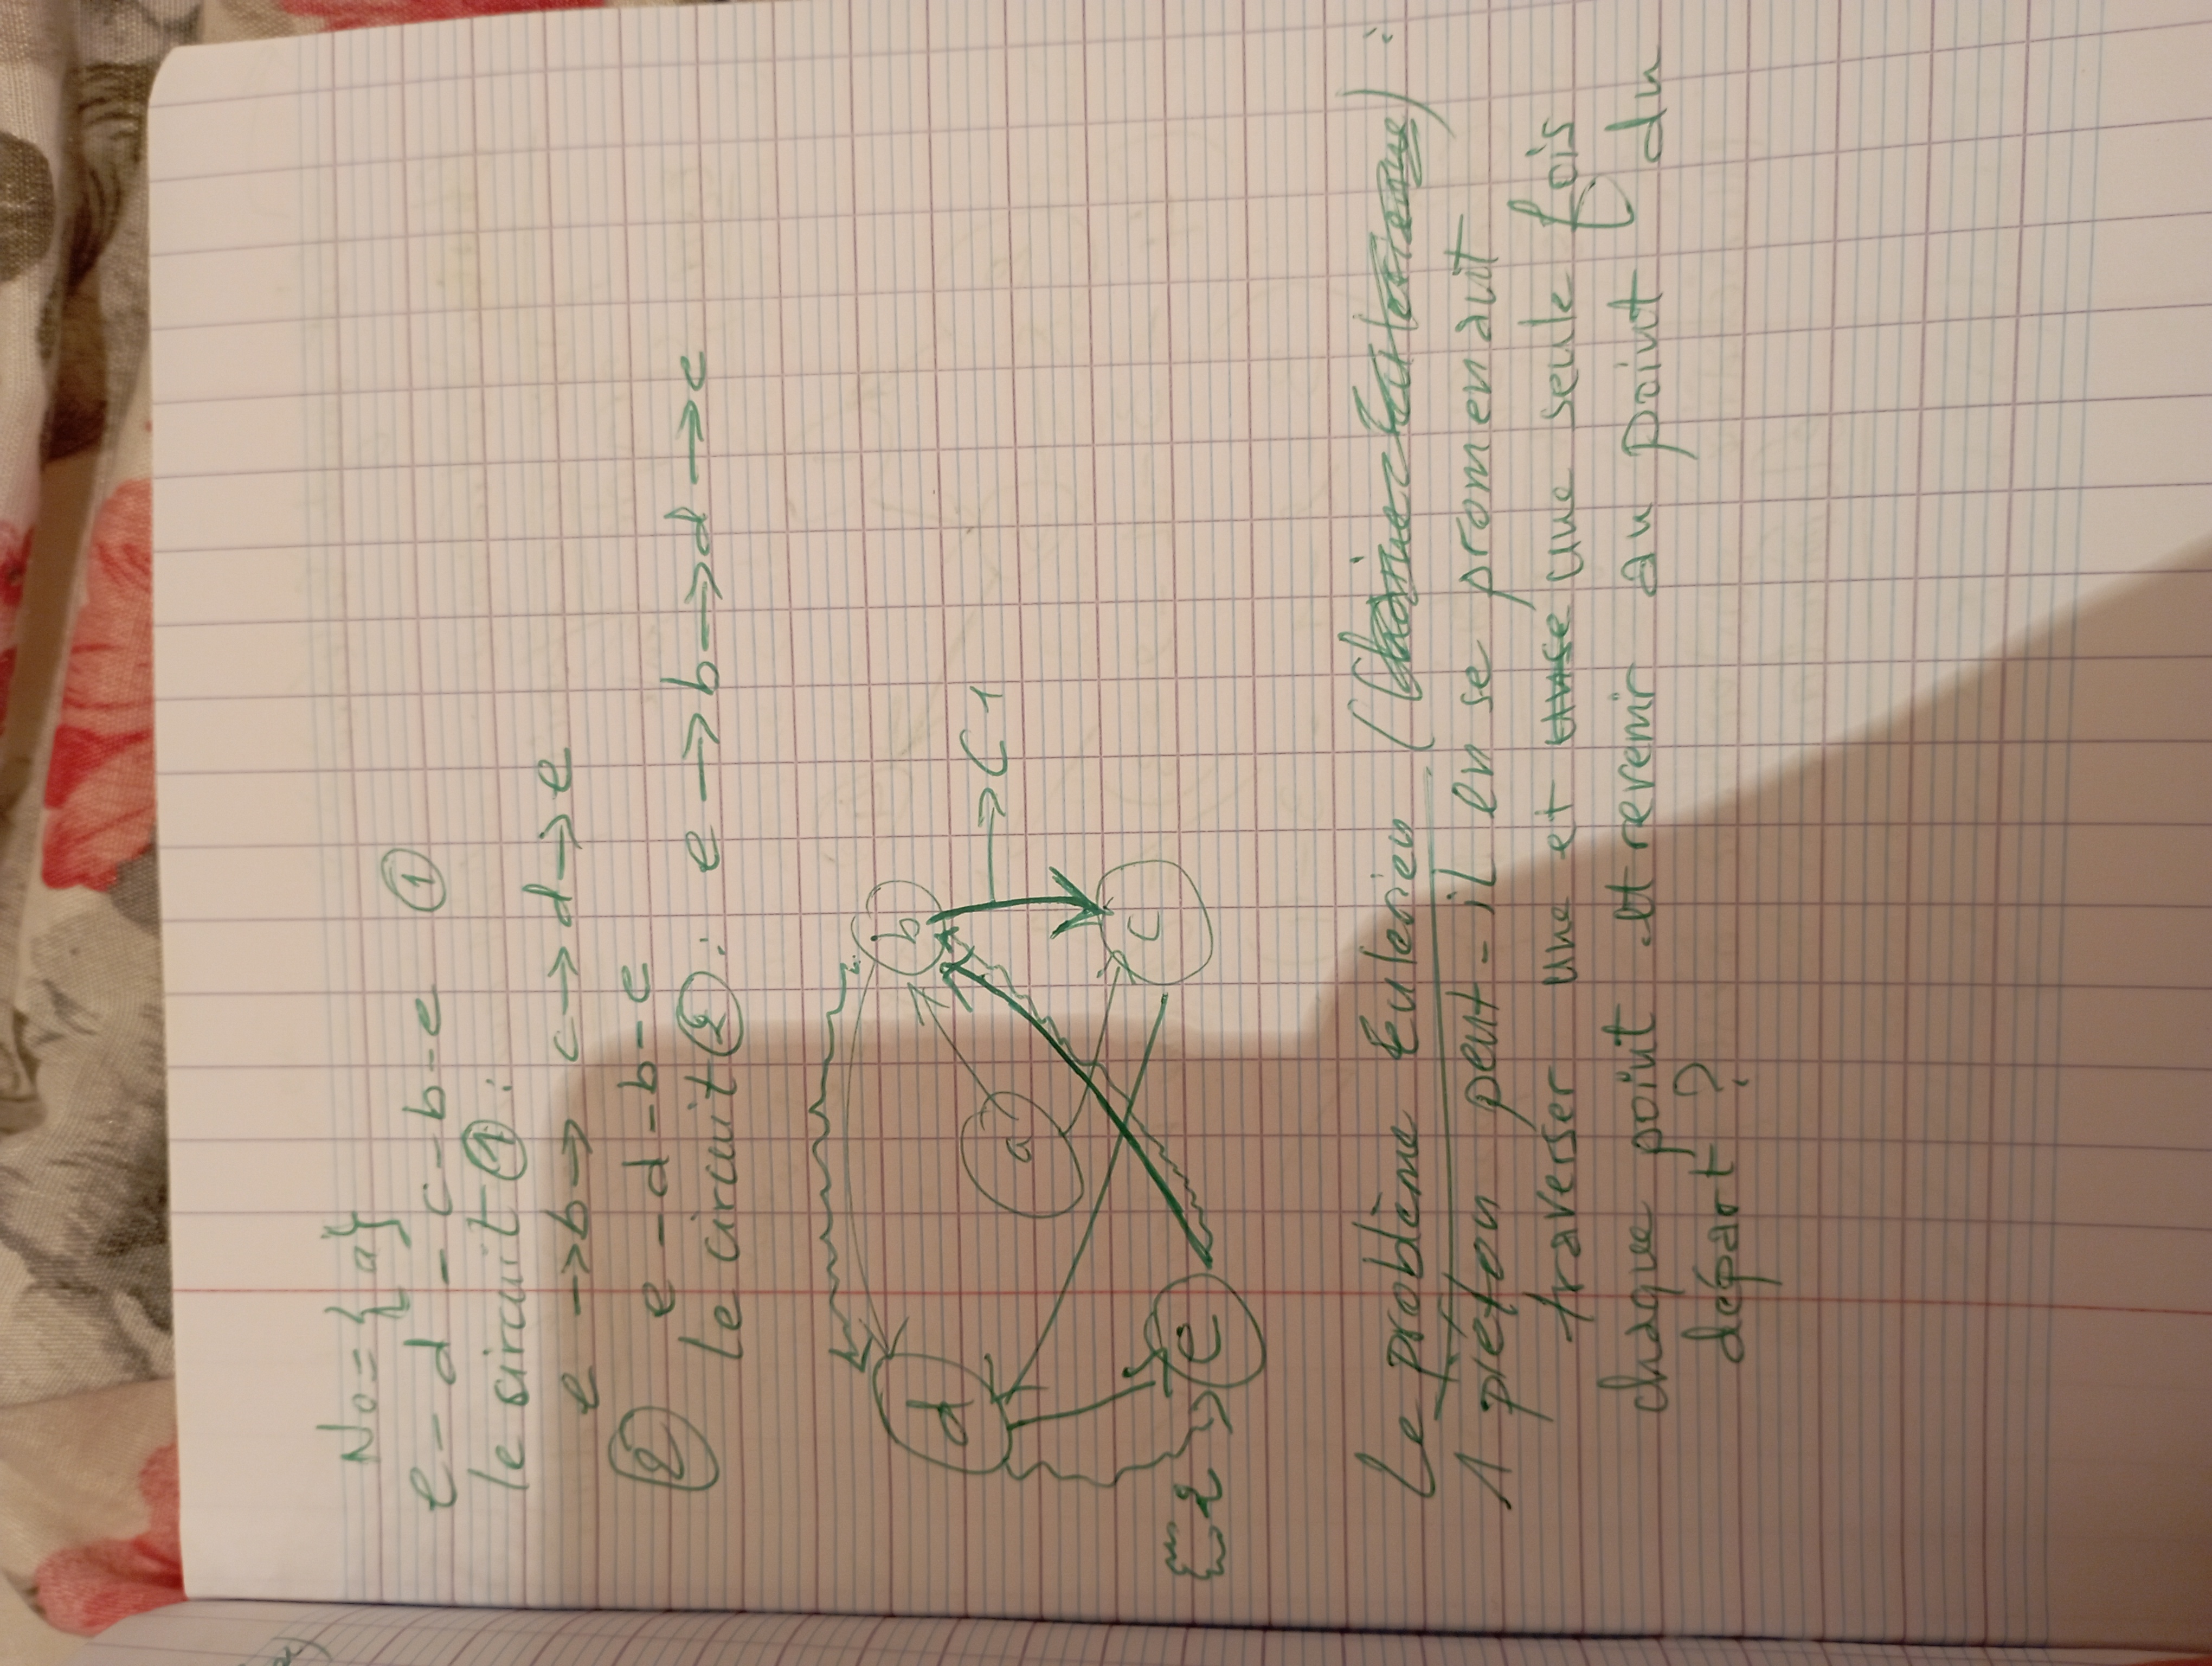 N0 = { a }
e - d - c - b - e ①
le sircuit ① :
e → b → c → d → e
② e - d - b - e
le circuit ② : e → b → d → e
d
b
a
→ C1
e
c
Le problème Eulerien ( :
1 piéton peut-il en se promenant
traverser une et une seule fois
chaque point et revenir au point du
départ ?